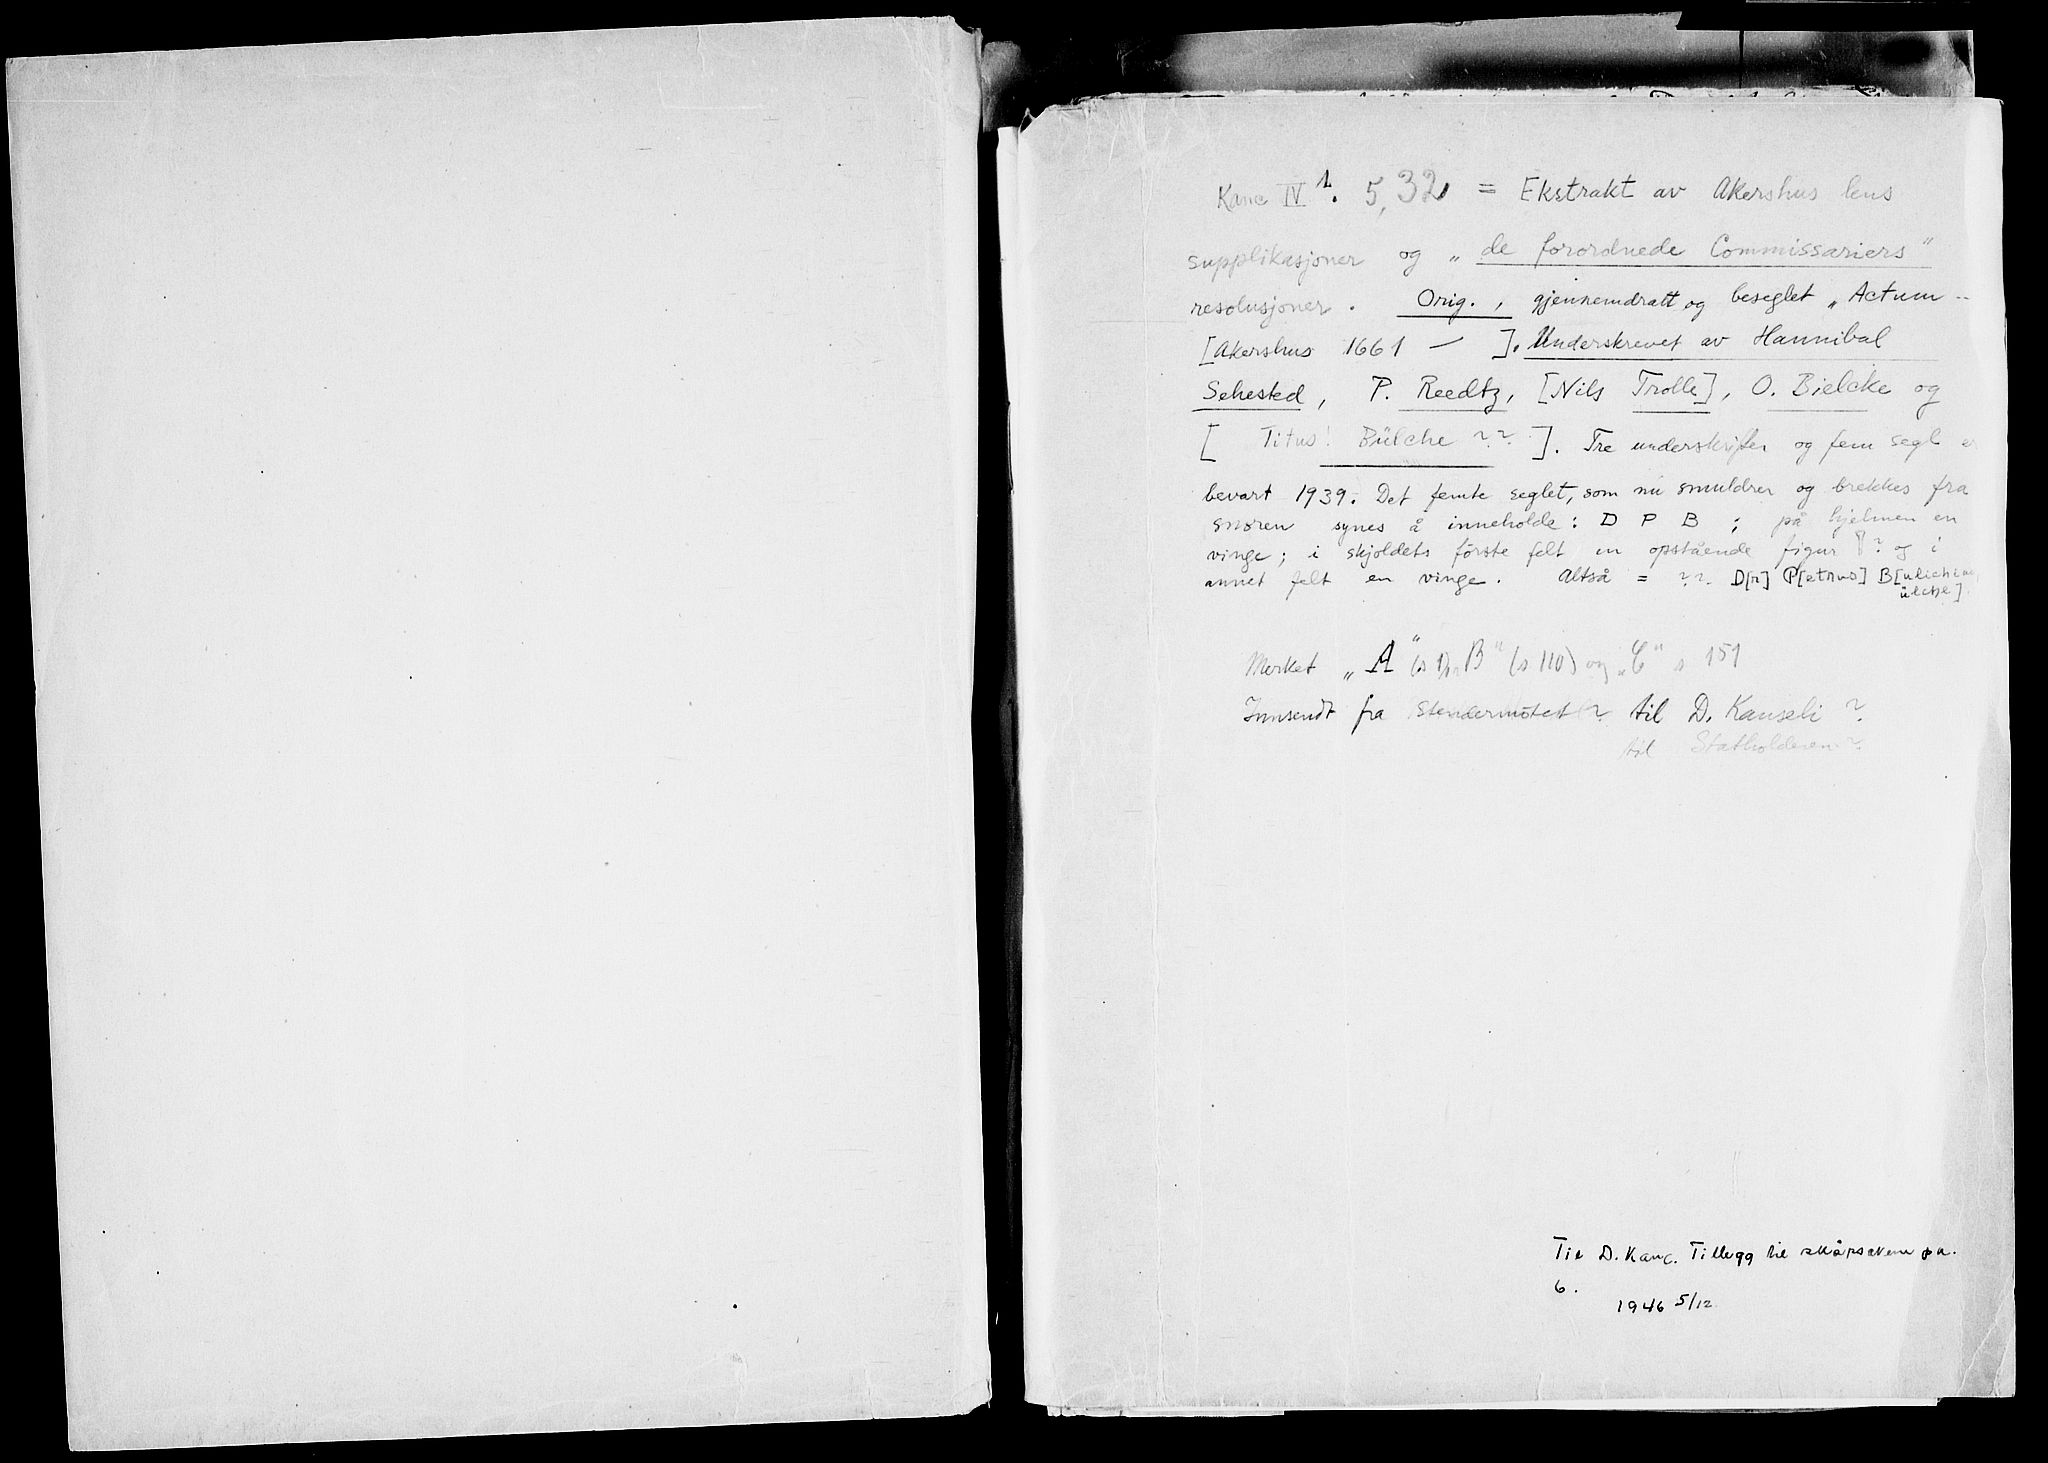 Kanc IV 1. 5,32 = Ekstrakt av Akershus lens
supplikasjoner og „de forordnede Commissariers"
resolusjoner. Orig., gjennemdratt og beseglet „Actum --
[Akershus 1661 — ]. Underskrevet av Hannibal
Sehested, P. Reedtz, [Nils Trolle], O. Bielcke og
[ Titus! Bülche ?? ]. Tre underskrifter og fem segl er
bevart 1939. Det femte seglet, som nu smuldrer og brekkes fra
snoren synes å inneholde: D P B ; på hjelmen en
vinge; i skjoldets første felt en opstående figur ? og i
annet felt en vinge. Altså = ?? D[r] P[etrus] B[ulichius,
ülche]
Merket „A" (s 1), „B" (s 110) og „C" s 151
Innsendt fra Stendermötet? til D. Kanseli ?
til Statholderen?
Til D. Kanc. Tillegg til skåpsakene pk.
6.
1946 5/12